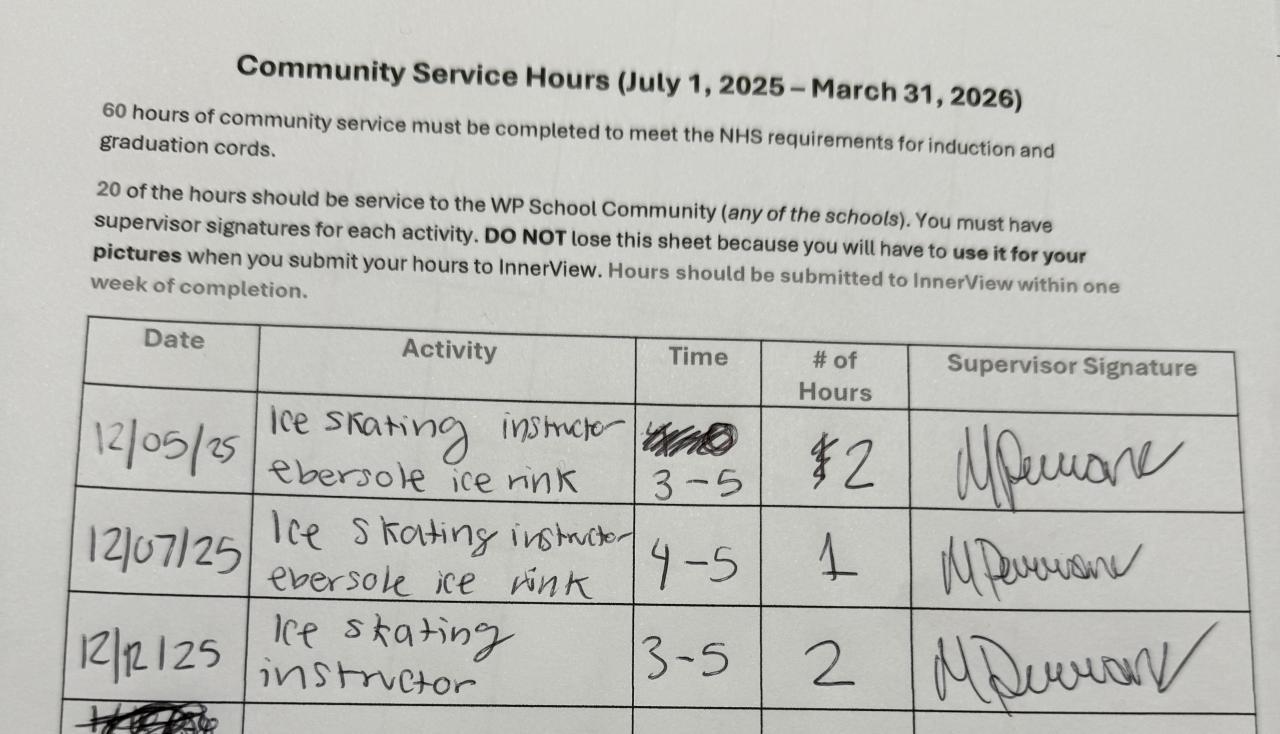 Community Service Hours (July 1, 2025 – March 31, 2026)
60 hours of community service must be completed to meet the NHS requirements for induction and
graduation cords.
20 of the hours should be service to the WP School Community (any of the schools). You must have
supervisor signatures for each activity. DO NOT lose this sheet because you will have to use it for your
pictures when you submit your hours to InnerView. Hours should be submitted to InnerView within one
week of completion.
Date
Activity
Time
# of
Hours
Supervisor Signature
12/05/25
Ice skating instructor
ebersole ice rink
3-5
2
12/07/25
Ice skating instructor
ebersole ice rink
4-5
1
12/12/25
Ice skating
instructor
3-5
2